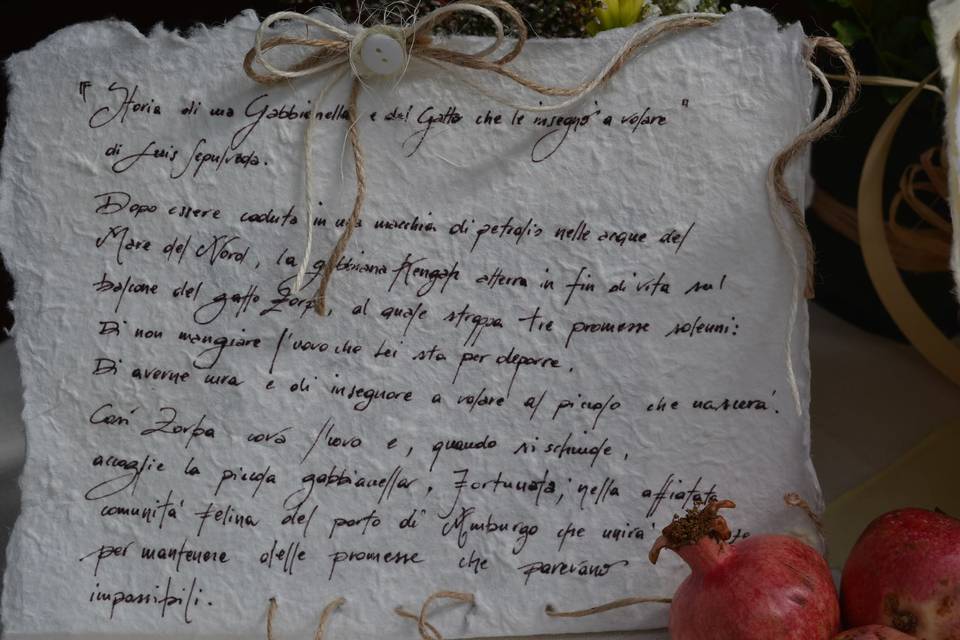 "Storia di una Gabbianella e del Gatto che le insegnò a volare"
di Luis Sepulveda.
Dopo essere caduta in una macchia di petrolio nelle acque del
Mare del Nord, la gabbiana Kengah atterra in fin di vita sul
balcone del gatto Zorba, al quale strappa tre promesse solenni:
Di non mangiare l'uovo che lei sta per deporre.
Di averne cura e di insegnare a volare al piccolo che nascerà.
Così Zorba cova l'uovo e, quando si schiude,
accoglie la piccola gabbianella, Fortunata, nella affiatata
comunità felina del porto di Amburgo che unirà
per mantenere delle promesse che parevano
impossibili.